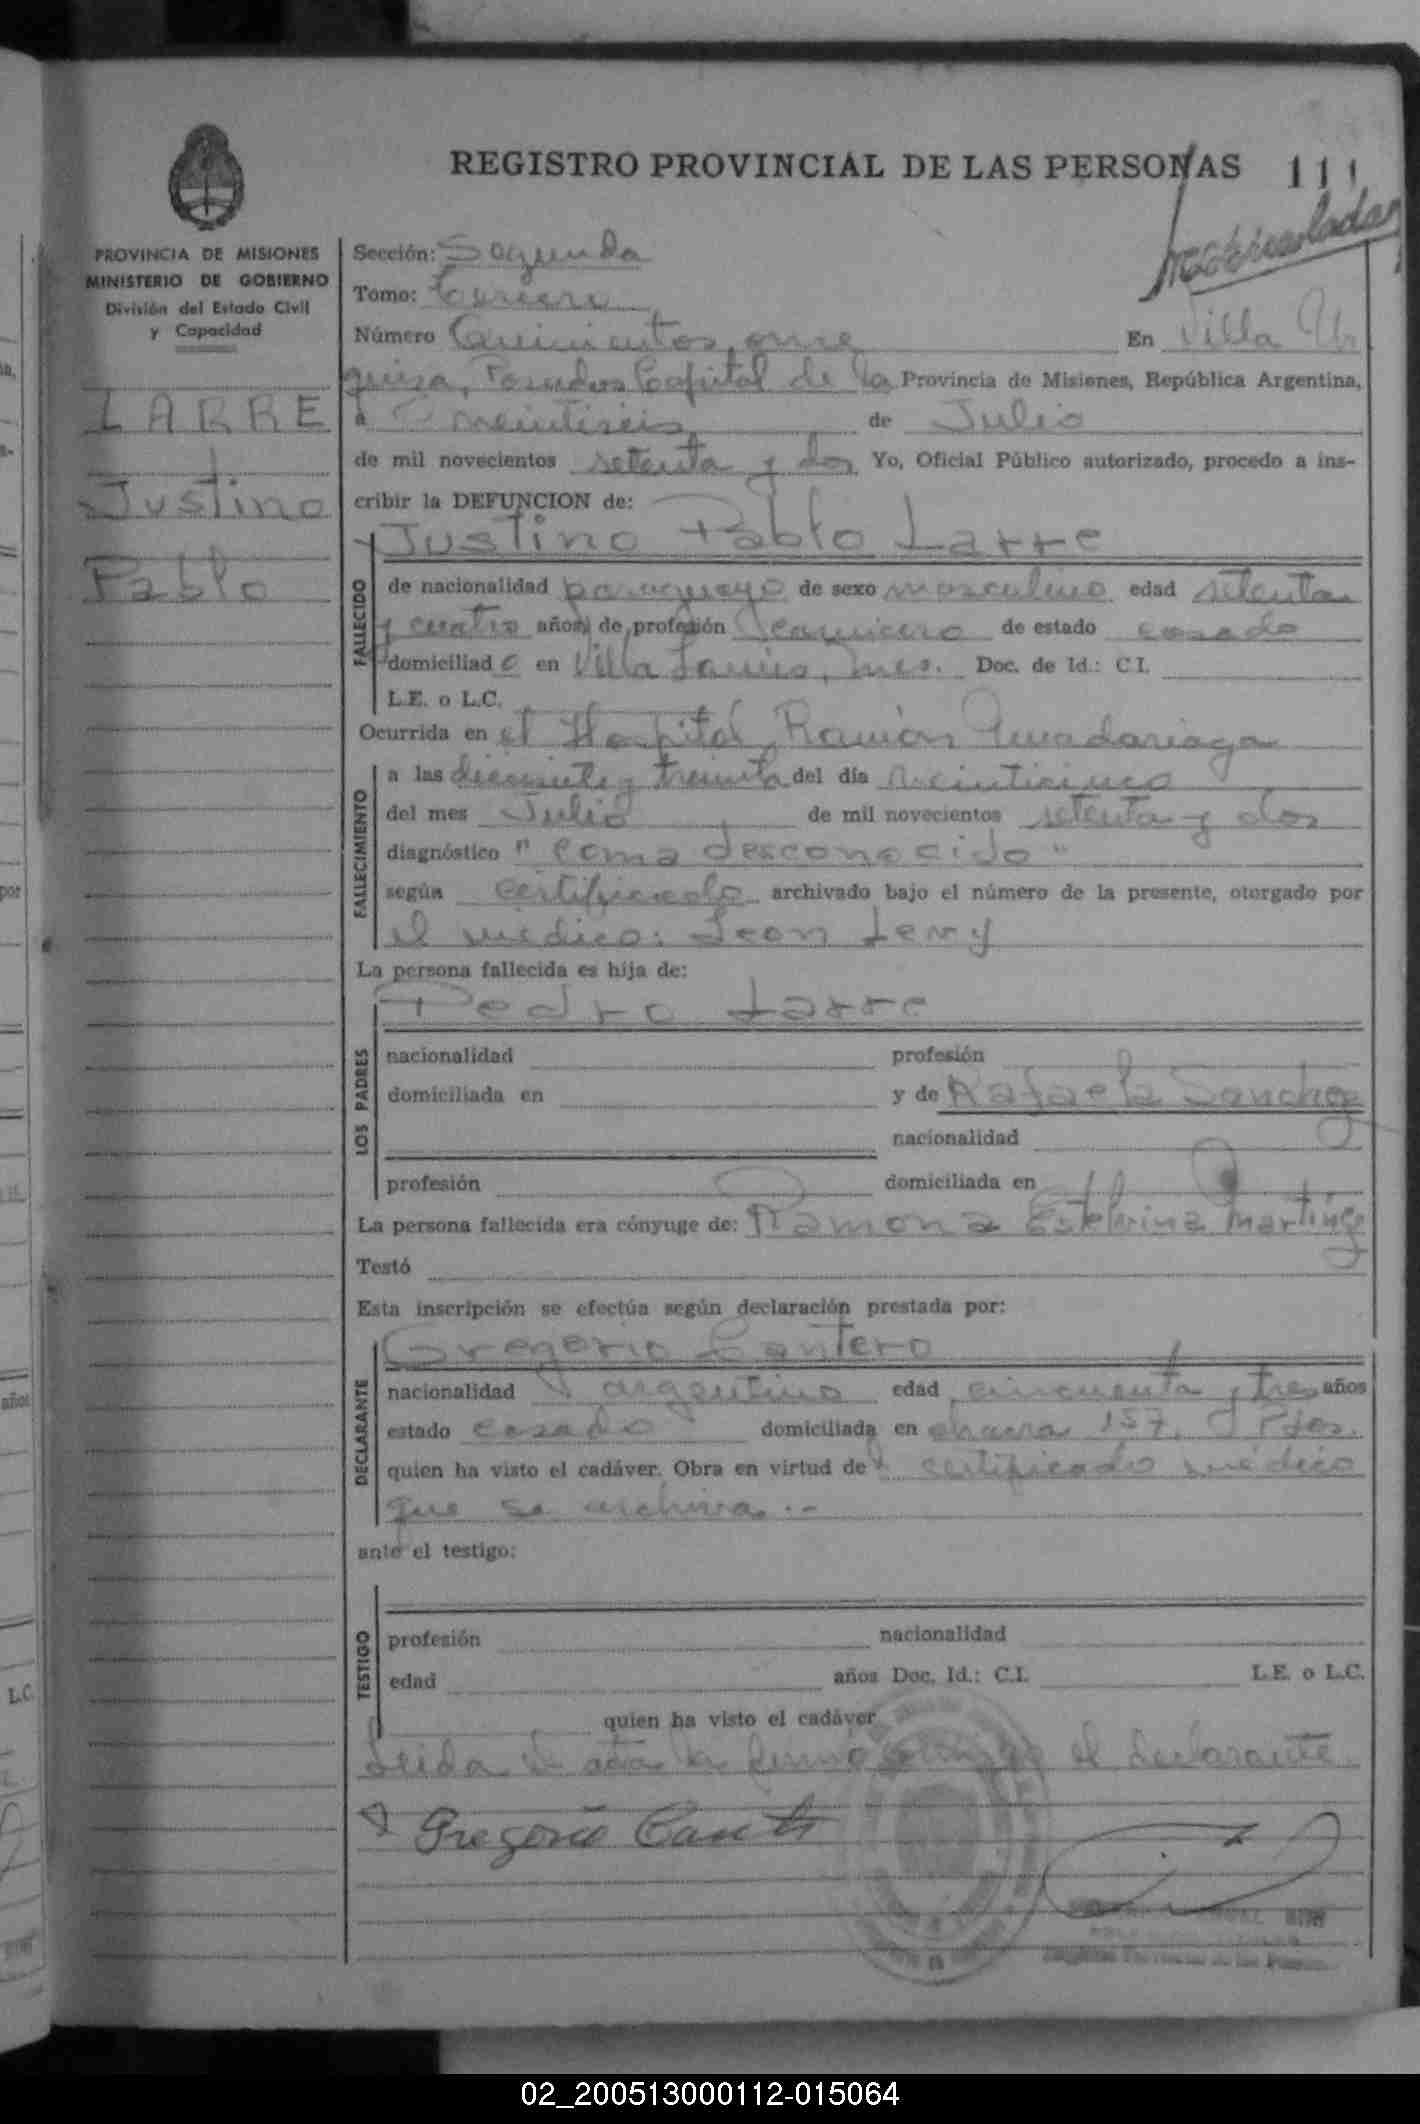 REGISTRO PROVINCIAL DE LAS PERSONAS 111
PROVINCIA DE MISIONES
MINISTERIO DE GOBIERNO
División del Estado Civil
y Capacidad
LARRE
Justino
Pablo
Sección: Segunda
Tomo: tercero
Número Quinientos once En Villa Ur
quiza, Posadas Capital de la Provincia de Misiones, República Argentina,
a veintiseis de Julio
de mil novecientos setenta y dos Yo, Oficial Público autorizado, procedo a ins-
cribir la DEFUNCION de:
Justino Pablo Larre
FALLECIDO
de nacionalidad paraguayo de sexo masculino edad setenta
y cuatro años, de profesión carnicero de estado casado
domiciliad o en Villa Lanus, Mnes. Doc. de Id.: C.I.
L.E. o L.C.
Ocurrida en el Hospital Ramón Madariaga
FALLECIMIENTO
a las diecisiete y treinta del día veinticinco
del mes Julio de mil novecientos setenta y dos
diagnóstico " coma desconocido "
según certificado archivado bajo el número de la presente, otorgado por
el médico: Leon Levy
La persona fallecida es hija de:
Pedro Larre
LOS PADRES
nacionalidad profesión
domiciliada en y de Rafaela Sanchez
nacionalidad
profesión domiciliada en
La persona fallecida era cónyuge de: Ramona Estelvina Martinez
Testó
Esta inscripción se efectúa según declaración prestada por:
Gregorio Cantero
DECLARANTE
nacionalidad argentino edad cincuenta y tres años
estado casado domiciliada en chacra 157, Pdas.
quien ha visto el cadáver. Obra en virtud de certificado médico
que se archiva.-
ante el testigo:
TESTIGO
profesión nacionalidad
edad años Doc. Id.: C.I. L.E. o L.C.
quien ha visto el cadáver
Leida el acta la firma conmigo el declarante
Gregorio Cant
02_200513000112-015064